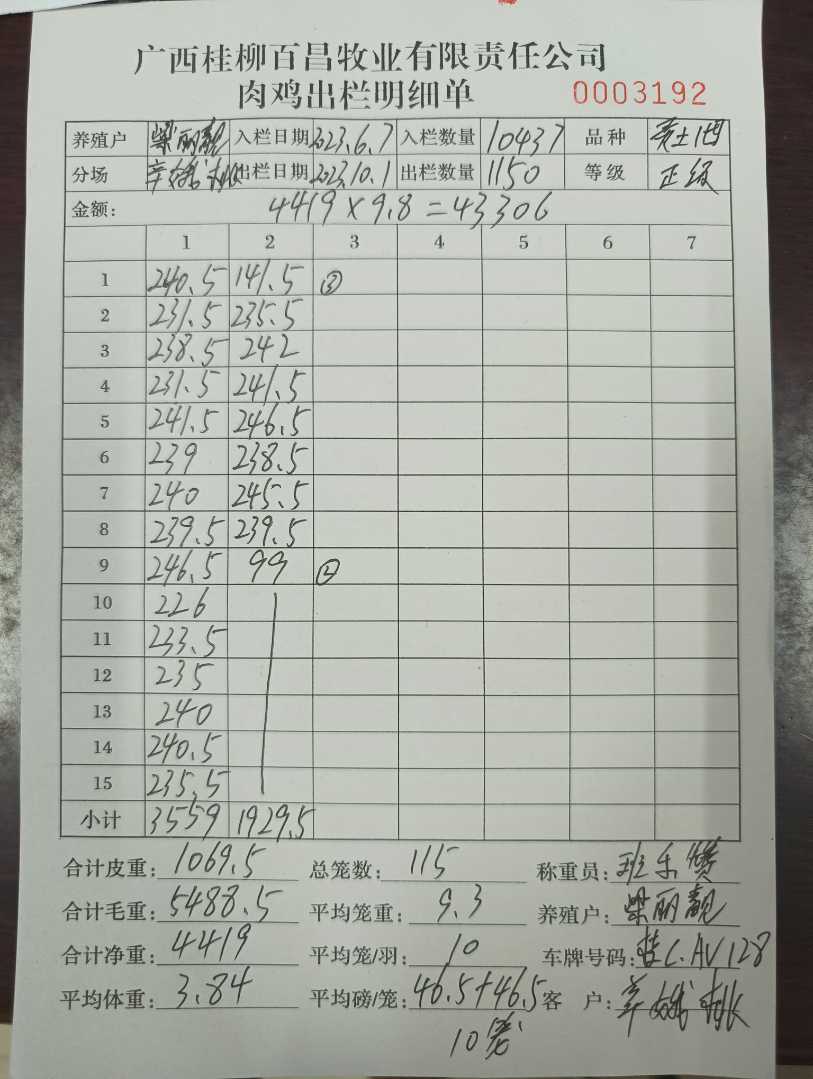 广西桂柳百昌牧业有限责任公司
肉鸡出栏明细单 0003192
养殖户 梁丽靓 入栏日期 2023.6.7 入栏数量 10437 品种
分场 出栏日期 2023.10.1 出栏数量 1150 等级 正级
金额: 4419×9.8=43306
1 2 3 4 5 6 7
1 240.5 141.5 ③
2 231.5 235.5
3 238.5 242
4 231.5 241.5
5 241.5 246.5
6 239 238.5
7 240 245.5
8 239.5 239.5
9 246.5 99 ②
10 226
11 233.5
12 235
13 240
14 240.5
15 235.5
小计 3559 1929.5
合计皮重: 1069.5 总笼数: 115 称重员:
合计毛重: 5488.5 平均笼重: 9.3 养殖户: 梁丽靓
合计净重: 4419 平均笼/羽: 10 车牌号码: 桂C.AV128
平均体重: 3.84 平均磅/笼: 46.5+46.5 客 户: